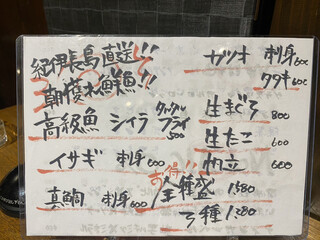 紀伊長島直送!!
朝〆鮮魚!!
高級魚 シイラ タルタルフライ 500
イサギ 刺身 600
真鯛 刺身 600
カツオ 刺身 600
タタキ 600
生まぐろ 800
生たこ 600
帆立 600
お得!
種盛 1580
3種 1280